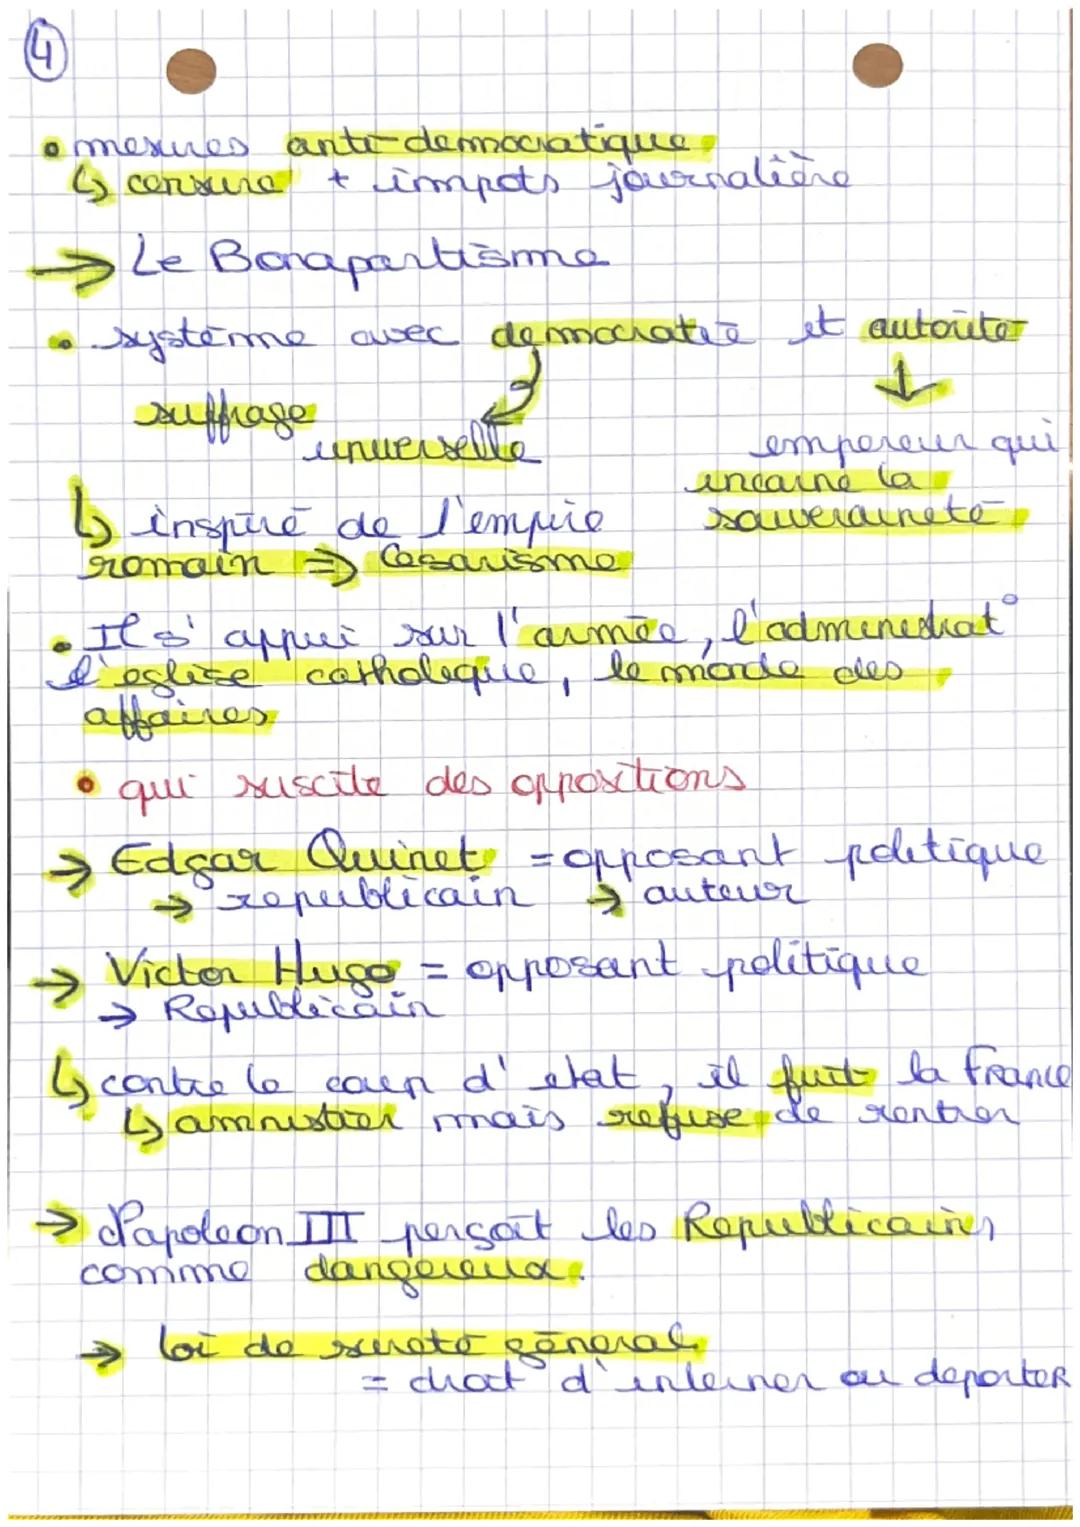 4
• mesures anti-democratique
↳ censure + impots journalière
→ Le Bonapartisme
• système avec democratie et autorité
suffrage
universelle
↓
empereur qui
incarne la
souveraineté
↳ inspiré de l'empire
romain ⇒ Cesarisme
• Il s'appui sur l'armée, l'administrat°
l'eglise catholique, le monde des
affaires
• qui suscite des oppositions
→ Edgar Quinet = opposant politique
→ republicain → auteur
→ Victor Hugo = opposant politique
→ Republicain
↳ contre le coup d'etat, il fuit la France
↳ amnistier mais refuse de rentrer
→ Napoleon III perçoit les Republicains
comme dangereux.
→ loi de sureté général
= droit d'interner ou deporter